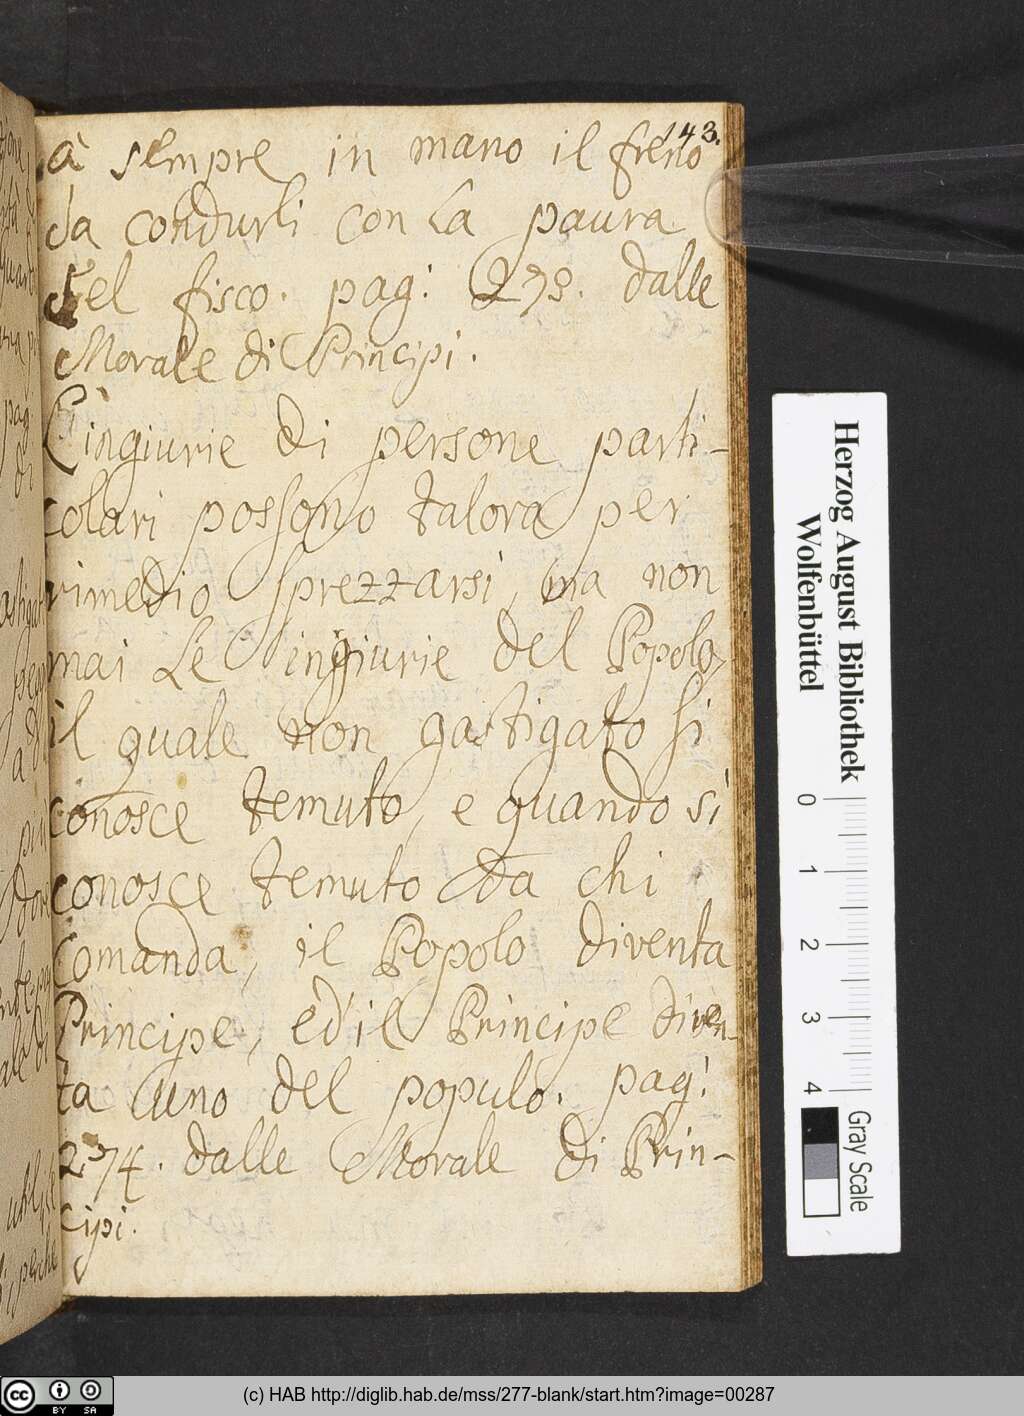 143.
à sempre in mano il freno
da condurli con la paura
del fisco. pag: 273. dalle
Morale di Principi.
L'ingiurie di persone parti-
colari possono talora per
rimedio sprezzarsi, ma non
mai le ingiurie del Popolo,
il quale non gastigato si
conosce temuto, e quando si
conosce temuto da chi
Comanda, il Popolo diventa
Principe, ed'il Principe diven-
ta uno del populo. pag:
274. dalle Morale di Prin-
cipi.
Herzog August Bibliothek
Wolfenbüttel
0 1 2 3 4
Gray Scale
(c) HAB http://diglib.hab.de/mss/277-blank/start.htm?image=00287
cc BY SA